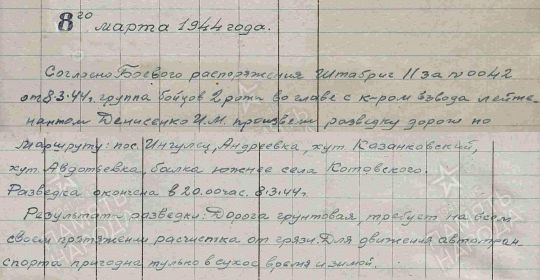 8го марта 1944 года.
Согласно Боевого распоряжения Штабриг 11 за № 0042
от 8.3.44г. группа бойцов 2 роты во главе с к-ром взвода лейте-
нантом Денисенко И.М. произвели разведку дорог по
маршруту: пос. Ингулец, Андреевка, хут. Казанковский,
хут. Авдотьевка, балка южнее села Котовского.
Разведка окончена в 20.00 час. 8.3.44г.
Результаты разведки: Дорога грунтовая, требует на всем
своем протяжении расчистка от грязи. Для движения автотран-
спорта пригодна тулько в сухое время и зимой.